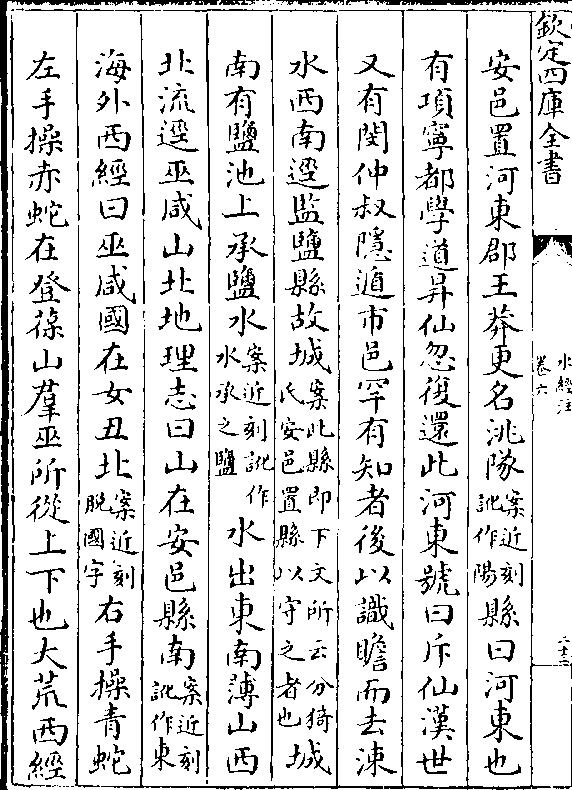 欽定四庫全書
水經注
卷六
二十三
安邑置河東郡王莽更名洮隊案近刻訛作陽縣曰河東也
有項寧都學道昇仙忽復還此河東號曰斥仙漢世
又有閔仲叔隱遁市邑罕有知者後以識瞻而去涑
水西南逕監鹽縣故城案此縣即下文所云分猗氏安邑置縣以守之者也城
南有鹽池上承鹽水案近刻訛作水承之鹽水出東南薄山西
北流逕巫咸山北地理志曰山在安邑縣南案近刻訛作東
海外西經曰巫咸國在女丑北案近刻脫國字右手操青蛇
左手操赤蛇在登葆山羣巫所從上下也大荒西經